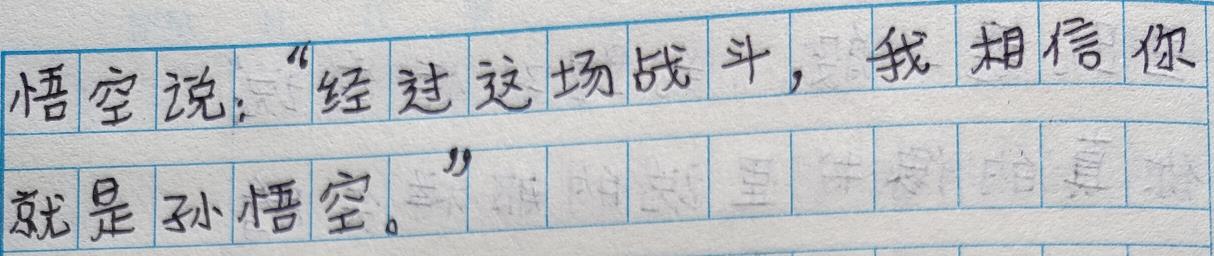 悟空说：“经过这场战斗，我相信你
就是孙悟空。”